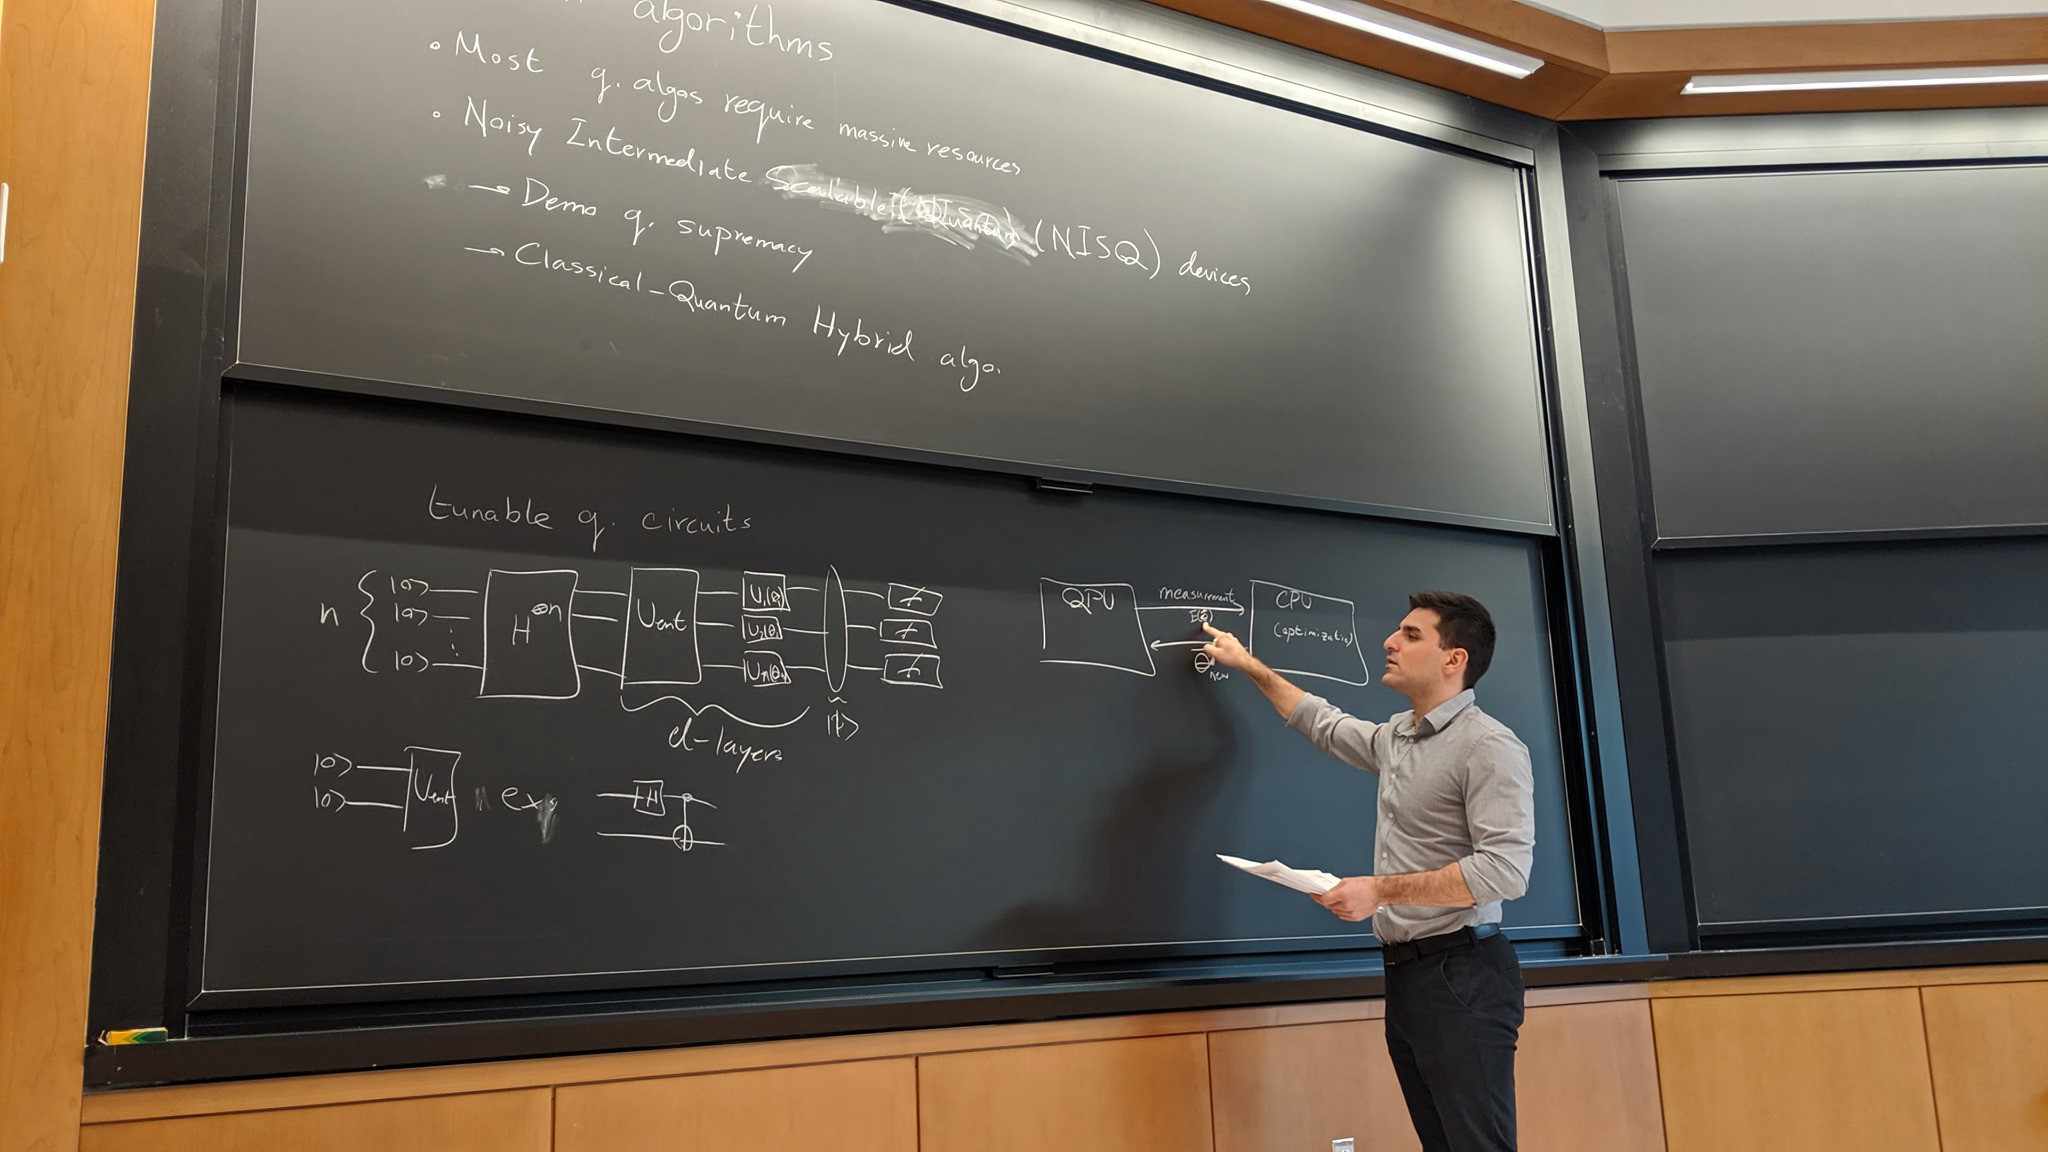 algorithms
• Most q. algos require massive resources
• Noisy Intermediate Scalable Quantum (NISQ) devices
→ Demo q. supremacy
→ Classical-Quantum Hybrid algo.
tunable q. circuits
n { |0> |0> ⋮ |0>
H^⊗n
Uent
U₁(θ₁)
U₂(θ₂)
Uₙ(θₙ)
d-layers
|ψ>
QPU
measurement
E(θ)
θ new
CPU
(optimization)
|0>
|0>
Uent
ex.
H